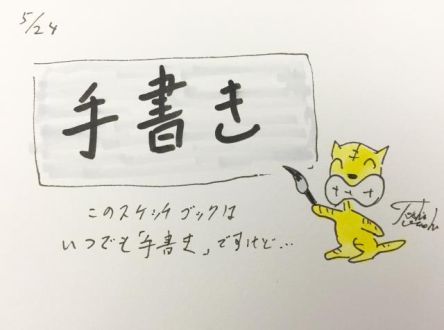 5/24
手書き
このスケッチブックは
いつでも「手書き」ですけど…